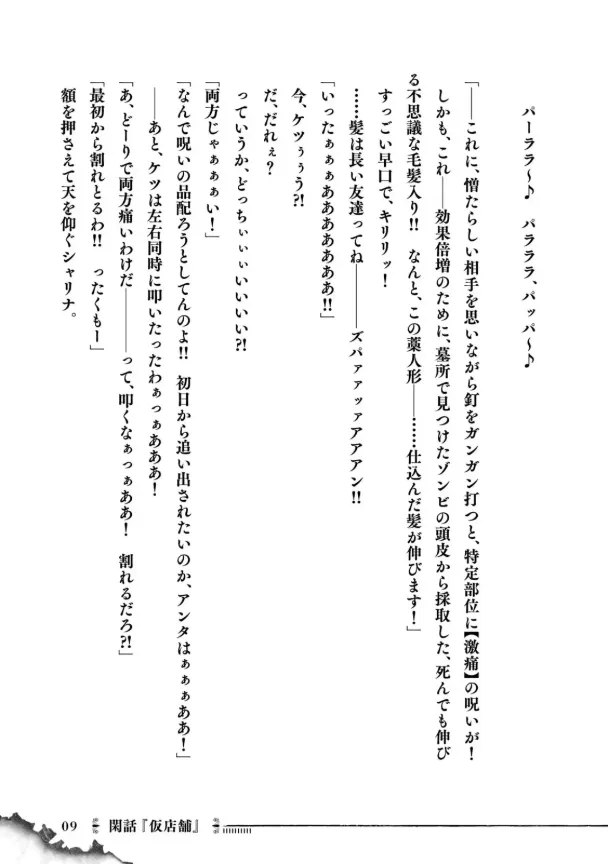 パーララ～♪　パラララ、パッパ～♪
「――これに、憎たらしい相手を思いながら釘をガンガン打つと、特定部位に【激痛】の呪いが！
しかも、これ――効果倍増のために、墓所で見つけたゾンビの頭皮から採取した、死んでも伸び
る不思議な毛髪入り!!　なんと、この藁人形――……仕込んだ髪が伸びます！」
すっごい早口で、キリリッ！
……髪は長い友達ってね――ズパァァッァアアアン!!
「いったぁぁぁあああああああ!!」
今、ケツぅぅう?!
だ、だれぇ？
っていうか、どっちぃぃぃいいいい?!
「両方じゃぁぁぁぁい！」
「なんで呪いの品配ろうとしてんのよ!!　初日から追い出されたいのか、アンタはぁぁぁああ！」
――あと、ケツは左右同時に叩いたったわぁっぁあああ！
「あ、どーりで両方痛いわけだ――って、叩くなぁっぁああ！　割れるだろ?!」
「最初から割れとるわ!!　ったくもー」
額を押さえて天を仰ぐシャリナ。
09　閑話『仮店舗』